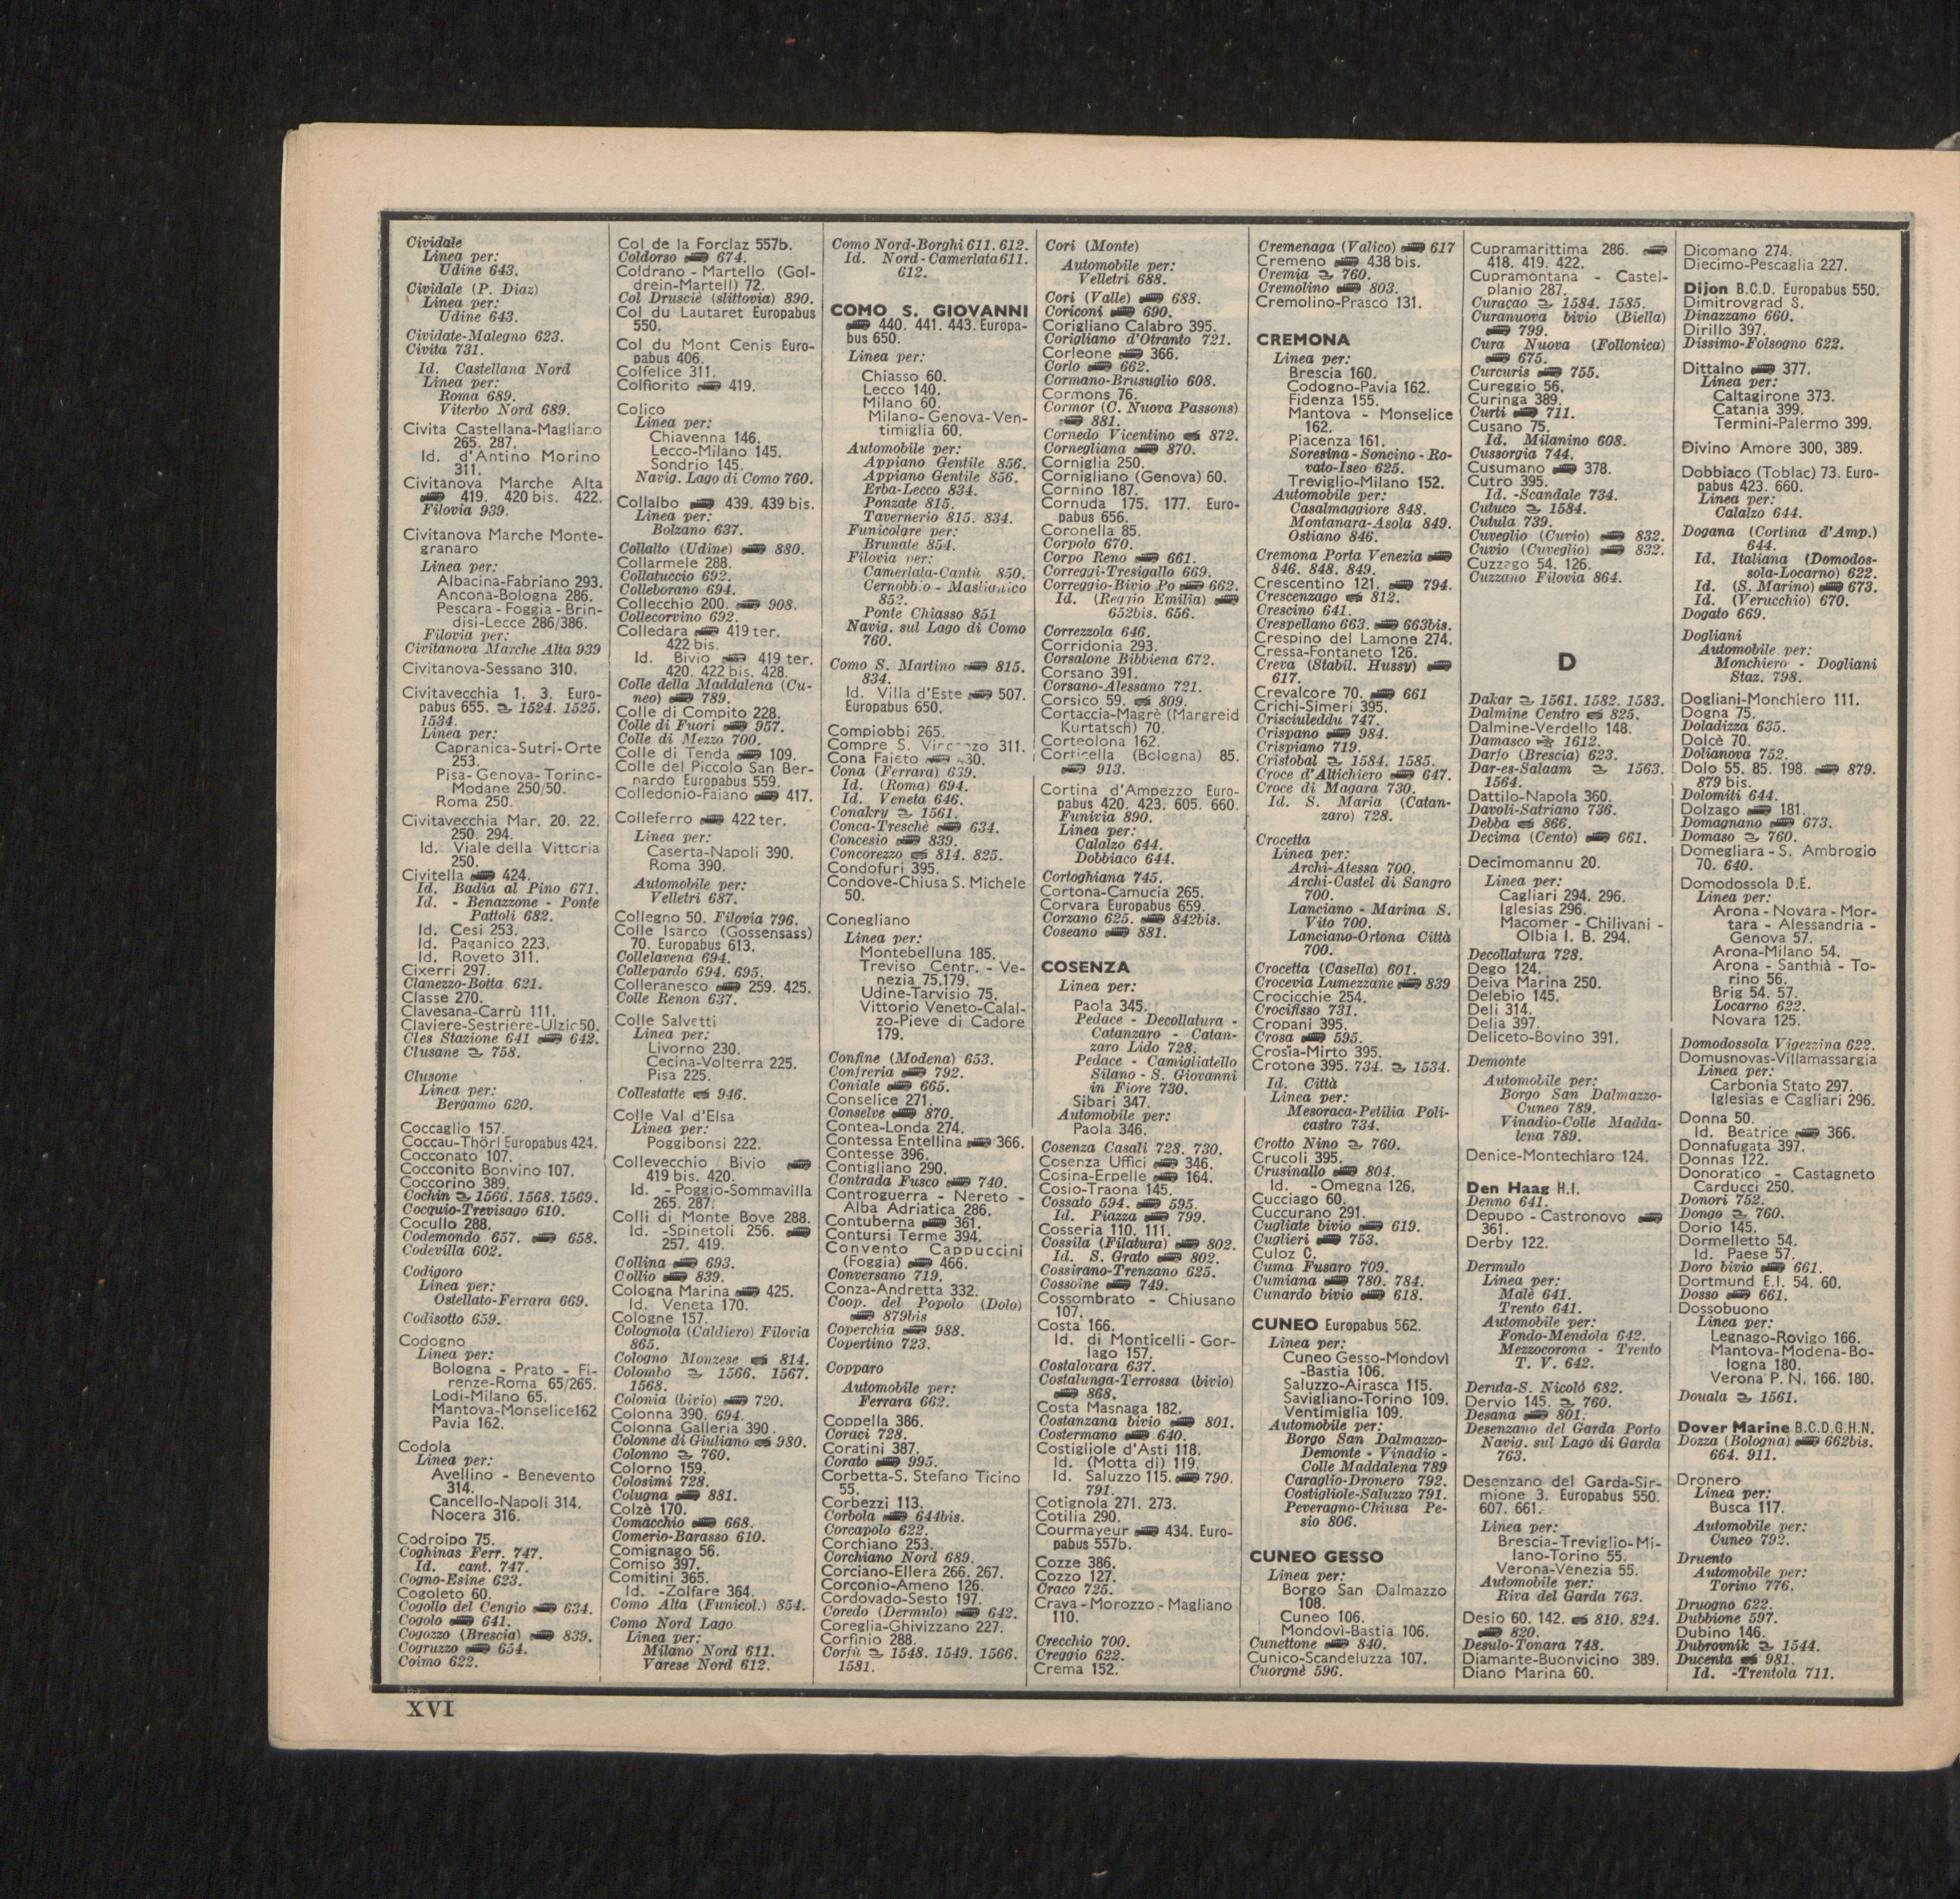 Cividale
Linea per:
Udine 643.
Cividale (P. Diaz)
Linea per:
Udine 643.
Cividate-Malegno 623.
Civita 731.
Id. Castellana Nord
Linea per:
Roma 689.
Viterbo Nord 689.
Civita Castellana-Magliano
265. 287.
Id. d'Antino Morino
311.
Civitanova Marche Alta
419. 420 bis. 422.
Filovia 939.
Civitanova Marche Monte-
granaro
Linea per:
Albacina-Fabriano 293.
Ancona-Bologna 286.
Pescara - Foggia - Brin-
disi-Lecce 286/386.
Filovia per:
Civitanova Marche Alta 939
Civitanova-Sessano 310.
Civitavecchia 1. 3. Euro-
pabus 655. 1524. 1525.
1534.
Linea per:
Capranica-Sutri-Orte
253.
Pisa-Genova-Torino-
Modane 250/50.
Roma 250.
Civitavecchia Mar. 20. 22.
250. 294.
Id. Viale della Vittoria
250.
Civitella 424.
Id. Badia al Pino 671.
Id. - Benazzone - Ponte
Pattoli 682.
Id. Cesi 253.
Id. Paganico 223.
Id. Roveto 311.
Cixerri 297.
Clanezzo-Botta 621.
Classe 270.
Clavesana-Carrù 111.
Claviere-Sestriere-Ulzio 50.
Cles Stazione 641 642.
Clusane 758.
Clusone
Linea per:
Bergamo 620.
Coccaglio 157.
Coccau-Thörl Europabus 424.
Cocconato 107.
Cocconito Bonvino 107.
Coccorino 389.
Cochin 1566. 1568. 1569.
Cocquio-Trevisago 610.
Cocullo 288.
Codemondo 657. 658.
Codevilla 602.
Codigoro
Linea per:
Ostellato-Ferrara 669.
Codisotto 659.
Codogno
Linea per:
Bologna - Prato - Fi-
renze-Roma 65/265.
Lodi-Milano 65.
Mantova-Monselice 162
Pavia 162.
Codola
Linea per:
Avellino - Benevento
314.
Cancello-Napoli 314.
Nocera 316.
Codroipo 75.
Coghinas Ferr. 747.
Id. cant. 747.
Cogno-Esine 623.
Cogoleto 60.
Cogollo del Cengio 634.
Cogolo 641.
Cogozzo (Brescia) 839.
Cogruzzo 654.
Coimo 622.
Col de la Forclaz 557b.
Coldorso 674.
Coldrano - Martello (Gol-
drein-Martell) 72.
Col Drusciè (slittovia) 890.
Col du Lautaret Europabus
550.
Col du Mont Cenis Euro-
pabus 406.
Colfelice 311.
Colfiorito 419.
Colico
Linea per:
Chiavenna 146.
Lecco-Milano 145.
Sondrio 145.
Navig. Lago di Como 760.
Collalbo 439. 439 bis.
Linea per:
Bolzano 637.
Collalto (Udine) 880.
Collarmele 288.
Collatuccio 692.
Colleborano 694.
Collecchio 200. 908.
Collecorvino 692.
Colledara 419 ter.
422 bis.
Id. Bivio 419 ter.
420. 422 bis. 428.
Colle della Maddalena (Cu-
neo) 789.
Colle di Compito 228.
Colle di Fuori 957.
Colle di Mezzo 700.
Colle di Tenda 109.
Colle del Piccolo San Ber-
nardo Europabus 559.
Colledonio-Faiano 417.
Colleferro 422 ter.
Linea per:
Caserta-Napoli 390.
Roma 390.
Automobile per:
Velletri 687.
Collegno 50. Filovia 796.
Colle Isarco (Gossensass)
70. Europabus 613.
Collelavena 694.
Collepardo 694. 695.
Colleranesco 259. 425.
Colle Renon 637.
Colle Salvetti
Linea per:
Livorno 230.
Cecina-Volterra 225.
Pisa 225.
Collestatte 946.
Colle Val d'Elsa
Linea per:
Poggibonsi 222.
Collevecchio Bivio
419 bis. 420.
Id. - Poggio-Sommavilla
265. 287.
Colli di Monte Bove 288.
Id. -Spinetoli 256.
257. 419.
Collina 693.
Collio 839.
Cologna Marina 425.
Id. Veneta 170.
Cologne 157.
Colognola (Caldiero) Filovia
865.
Cologno Monzese 814.
Colombo 1566. 1567.
1568.
Colonia (bivio) 720.
Colonna 390. 694.
Colonna Galleria 390.
Colonne di Giuliano 980.
Colonno 760.
Colorno 159.
Colosimi 728.
Colugna 881.
Colzè 170.
Comacchio 668.
Comerio-Barasso 610.
Comignago 56.
Comiso 397.
Comitini 365.
Id. -Zolfare 364.
Como Alta (Funicol.) 854.
Como Nord Lago
Linea per:
Milano Nord 611.
Varese Nord 612.
Como Nord-Borghi 611. 612.
Id. Nord-Camerlata 611.
612.
COMO S. GIOVANNI
440. 441. 443. Europa-
bus 650.
Linea per:
Chiasso 60.
Lecco 140.
Milano 60.
Milano-Genova-Ven-
timiglia 60.
Automobile per:
Appiano Gentile 856.
Appiano Gentile 856.
Erba-Lecco 834.
Ponzate 815.
Tavernerio 815. 834.
Funicolare per:
Brunate 854.
Filovia per:
Camerlata-Cantù 850.
Cernobbio - Maslianico
852.
Ponte Chiasso 851
Navig. sul Lago di Como
760.
Como S. Martino 815.
834.
Id. Villa d'Este 507.
Europabus 650.
Compiobbi 265.
Compre S. Vincenzo 311.
Cona Faieto 430.
Cona (Ferrara) 669.
Id. (Roma) 694.
Id. Veneta 646.
Conakry 1561.
Conca-Treschè 634.
Concesio 839.
Concorezzo 814. 825.
Condofuri 395.
Condove-Chiusa S. Michele
50.
Conegliano
Linea per:
Montebelluna 185.
Treviso Centr. - Ve-
nezia 75.179.
Udine-Tarvisio 75.
Vittorio Veneto-Calal-
zo-Pieve di Cadore
179.
Confine (Modena) 653.
Confreria 792.
Coniale 665.
Conselice 271.
Conselve 870.
Contea-Londa 274.
Contessa Entellina 366.
Contesse 396.
Contigliano 290.
Contrada Fusco 740.
Controguerra - Nereto -
Alba Adriatica 286.
Contuberna 361.
Contursi Terme 394.
Convento Cappuccini
(Foggia) 466.
Conversano 719.
Conza-Andretta 332.
Coop. del Popolo (Dolo)
879bis
Coperchia 988.
Copertino 723.
Copparo
Automobile per:
Ferrara 662.
Coppella 386.
Coraci 728.
Coratini 387.
Corato 995.
Corbetta-S. Stefano Ticino
55.
Corbezzi 113.
Corbola 644bis.
Corcapolo 622.
Corchiano 253.
Corchiano Nord 689.
Corciano-Ellera 266. 267.
Corconio-Ameno 126.
Cordovado-Sesto 197.
Coredo (Dermulo) 642.
Coreglia-Ghivizzano 227.
Corfinio 288.
Corfù 1548. 1549. 1566.
1581.
Cori (Monte)
Automobile per:
Velletri 688.
Cori (Valle) 688.
Coriconi 690.
Corigliano Calabro 395.
Corigliano d'Otranto 721.
Corleone 366.
Corlo 662.
Cormano-Brusuglio 608.
Cormons 76.
Cormor (C. Nuova Passons)
881.
Cornedo Vicentino 872.
Cornegliana 870.
Corniglia 250.
Cornigliano (Genova) 60.
Cornino 187.
Cornuda 175. 177. Euro-
pabus 656.
Coronella 85.
Corpolo 670.
Corpo Reno 661.
Correggi-Tresigallo 669.
Correggio-Bivio Po 662.
Id. (Reggio Emilia)
652bis. 656.
Correzzola 646.
Corridonia 293.
Corsalone Bibbiena 672.
Corsano 391.
Corsano-Alessano 721.
Corsico 59. 809.
Cortaccia-Magrè (Margreid
Kurtatsch) 70.
Corteolona 162.
Corticella (Bologna) 85.
913.
Cortina d'Ampezzo Euro-
pabus 420. 423. 605. 660.
Funivia 890.
Linea per:
Calalzo 644.
Dobbiaco 644.
Cortoghiana 745.
Cortona-Camucia 265.
Corvara Europabus 659.
Corzano 625. 842bis.
Coseano 881.
COSENZA
Linea per:
Paola 345.
Pedace - Decollatura -
Catanzaro - Catan-
zaro Lido 728.
Pedace - Camigliatello
Silano - S. Giovanni
in Fiore 730.
Sibari 347.
Automobile per:
Paola 346.
Cosenza Casali 728. 730.
Cosenza Uffici 346.
Cosina-Erpelle 164.
Cosio-Traona 145.
Cossato 594. 595.
Id. Piazza 799.
Cosseria 110. 111.
Cossila (Filatura) 802.
Id. S. Grato 802.
Cossirano-Trenzano 625.
Cossoine 749.
Cossombrato - Chiusano
107.
Costa 166.
Id. di Monticelli - Gor-
lago 157.
Costalovara 637.
Costalunga-Terrossa (bivio)
868.
Costa Masnaga 182.
Costanzana bivio 801.
Costermano 640.
Costigliole d'Asti 118.
Id. (Motta di) 119.
Id. Saluzzo 115. 790.
791.
Cotignola 271. 273.
Cotilia 290.
Courmayeur 434. Euro-
pabus 557b.
Cozze 386.
Cozzo 127.
Craco 725.
Crava - Morozzo - Magliano
110.
Crecchio 700.
Creggio 622.
Crema 152.
Cremenaga (Valico) 617
Cremeno 438 bis.
Cremia 760.
Cremolino 803.
Cremolino-Prasco 131.
CREMONA
Linea per:
Brescia 160.
Codogno-Pavia 162.
Fidenza 155.
Mantova - Monselice
162.
Piacenza 161.
Soresina - Soncino - Ro-
vato-Iseo 625.
Treviglio-Milano 152.
Automobile per:
Casalmaggiore 848.
Montanara-Asola 849.
Ostiano 846.
Cremona Porta Venezia
846. 848. 849.
Crescentino 121. 794.
Crescenzago 812.
Crescino 641.
Crespellano 663. 663bis.
Crespino del Lamone 274.
Cressa-Fontaneto 126.
Creva (Stabil. Hussy)
617.
Crevalcore 70. 661
Crichi-Simeri 395.
Crisciuleddu 747.
Crispano 984.
Crispiano 719.
Cristobal 1584. 1585.
Croce d'Altichiero 647.
Croce di Magara 730.
Id. S. Maria (Catan-
zaro) 728.
Crocetta
Linea per:
Archi-Atessa 700.
Archi-Castel di Sangro
700.
Lanciano - Marina S.
Vito 700.
Lanciano-Ortona Città
700.
Crocetta (Casella) 601.
Crocevia Lumezzane 839
Crocicchie 254.
Crocifisso 731.
Cropani 395.
Crosa 595.
Crosia-Mirto 395.
Crotone 395. 734. 1534.
Id. Città
Linea per:
Mesoraca-Petilia Poli-
castro 734.
Crotto Nino 760.
Crucoli 395.
Crusinallo 804.
Id. - Omegna 126.
Cucciago 60.
Cuccurano 291.
Cugliate bivio 619.
Cuglieri 753.
Culoz C.
Cuma Fusaro 709.
Cumiana 780. 784.
Cunardo bivio 618.
CUNEO Europabus 562.
Linea per:
Cuneo Gesso-Mondovì
-Bastia 106.
Saluzzo-Airasca 115.
Savigliano-Torino 109.
Ventimiglia 109.
Automobile per:
Borgo San Dalmazzo-
Demonte - Vinadio -
Colle Maddalena 789
Caraglio-Dronero 792.
Costigliole-Saluzzo 791.
Peveragno-Chiusa Pe-
sio 806.
CUNEO GESSO
Linea per:
Borgo San Dalmazzo
108.
Cuneo 106.
Mondovì-Bastia 106.
Cunettone 840.
Cunico-Scandeluzza 107.
Cuorgnè 596.
Cupramarittima 286.
418. 419. 422.
Cupramontana - Castel-
planio 287.
Curaçao 1584. 1585.
Curanuova bivio (Biella)
799.
Cura Nuova (Follonica)
675.
Curcuris 755.
Cureggio 56.
Curinga 389.
Curti 711.
Cusano 75.
Id. Milanino 608.
Cussorgia 744.
Cusumano 378.
Cutro 395.
Id. -Scandale 734.
Cutuco 1584.
Cutula 739.
Cuveglio (Cuvio) 832.
Cuvio (Cuveglio) 832.
Cuzzago 54. 126.
Cuzzano Filovia 864.
D
Dakar 1561. 1582. 1583.
Dalmine Centro 825.
Dalmine-Verdello 148.
Damasco 1612.
Darfo (Brescia) 623.
Dar-es-Salaam 1563.
1564.
Dattilo-Napola 360.
Davoli-Satriano 736.
Debba 866.
Decima (Cento) 661.
Decimomannu 20.
Linea per:
Cagliari 294. 296.
Iglesias 296.
Macomer - Chilivani -
Olbia I. B. 294.
Decollatura 728.
Dego 124.
Deiva Marina 250.
Delebio 145.
Deli 314.
Delia 397.
Deliceto-Bovino 391.
Demonte
Automobile per:
Borgo San Dalmazzo-
Cuneo 789.
Vinadio-Colle Madda-
lena 789.
Denice-Montechiaro 124.
Den Haag H.I.
Denno 641.
Depupo - Castronovo
361.
Derby 122.
Dermulo
Linea per:
Malè 641.
Trento 641.
Automobile per:
Fondo-Mendola 642.
Mezzocorona - Trento
T. V. 642.
Deruta-S. Nicolò 682.
Dervio 145. 760.
Desana 801.
Desenzano del Garda Porto
Navig. sul Lago di Garda
763.
Desenzano del Garda-Sir-
mione 3. Europabus 550.
607. 661.
Linea per:
Brescia-Treviglio-Mi-
lano-Torino 55.
Verona-Venezia 55.
Automobile per:
Riva del Garda 763.
Desio 60. 142. 810. 824.
820.
Desulo-Tonara 748.
Diamante-Buonvicino 389.
Diano Marina 60.
Dicomano 274.
Diecimo-Pescaglia 227.
Dijon B.C.D. Europabus 550.
Dimitrovgrad S.
Dinazzano 660.
Dirillo 397.
Dissimo-Folsogno 622.
Dittaino 377.
Linea per:
Caltagirone 373.
Catania 399.
Termini-Palermo 399.
Divino Amore 300, 389.
Dobbiaco (Toblac) 73. Euro-
pabus 423. 660.
Linea per:
Calalzo 644.
Dogana (Cortina d'Amp.)
644.
Id. Italiana (Domodos-
sola-Locarno) 622.
Id. (S. Marino) 673.
Id. (Verucchio) 670.
Dogato 669.
Dogliani
Automobile per:
Monchiero - Dogliani
Staz. 798.
Dogliani-Monchiero 111.
Dogna 75.
Doladizza 635.
Dolcè 70.
Dolianova 752.
Dolo 55. 85. 198. 879.
879 bis.
Dolomiti 644.
Dolzago 181.
Domagnano 673.
Domaso 760.
Domegliara - S. Ambrogio
70. 640.
Domodossola D.E.
Linea per:
Arona - Novara - Mor-
tara - Alessandria -
Genova 57.
Arona-Milano 54.
Arona - Santhià - To-
rino 56.
Brig 54. 57.
Locarno 622.
Novara 125.
Domodossola Vigezzina 622.
Domusnovas-Villamassargia
Linea per:
Carbonia Stato 297.
Iglesias e Cagliari 296.
Donna 50.
Id. Beatrice 366.
Donnafugata 397.
Donnas 122.
Donoratico - Castagneto
Carducci 250.
Donori 752.
Dongo 760.
Dorio 145.
Dormelletto 54.
Id. Paese 57.
Doro bivio 661.
Dortmund E.I. 54. 60.
Dosso 661.
Dossobuono
Linea per:
Legnago-Rovigo 166.
Mantova-Modena-Bo-
logna 180.
Verona P. N. 166. 180.
Douala 1561.
Dover Marine B.C.D.G.H.N.
Dozza (Bologna) 662bis.
664. 911.
Dronero
Linea per:
Busca 117.
Automobile per:
Cuneo 792.
Druento
Automobile per:
Torino 776.
Druogno 622.
Dubbione 597.
Dubino 146.
Dubrovnik 1544.
Ducenta 981.
Id. -Trentola 711.
XVI